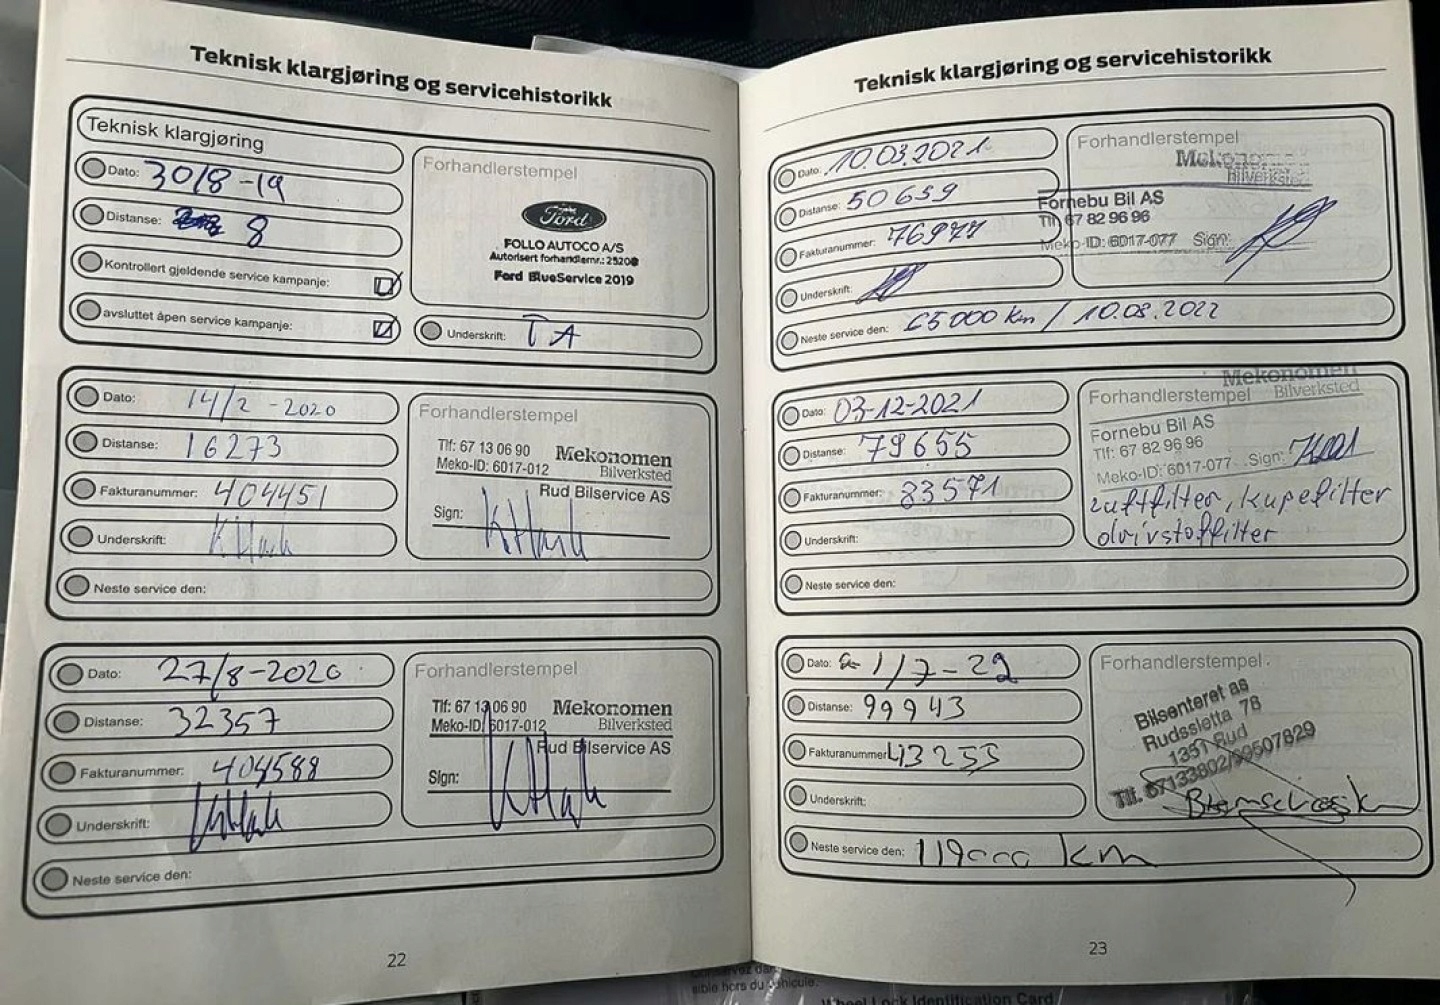 Teknisk klargjøring og servicehistorikk
Teknisk klargjøring
Dato: 30/8-19
Distanse: 8
Kontrollert gjeldende service kampanje:
avsluttet åpen service kampanje:
Forhandlerstempel
Ford
FOLLO AUTOCO A/S
Autorisert forhandlernr.: 25206
Ford BlueService 2019
Underskrift: TA
Dato: 14/2 -2020
Distanse: 16273
Fakturanummer: 404451
Underskrift:
Neste service den:
Forhandlerstempel
Tlf: 67 13 06 90 Mekonomen
Meko-ID: 6017-012 Bilverksted
Rud Bilservice AS
Sign:
Dato: 27/8-2020
Distanse: 32357
Fakturanummer: 404588
Underskrift:
Neste service den:
Forhandlerstempel
Tlf: 67 13 06 90 Mekonomen
Meko-ID: 6017-012 Bilverksted
Rud Bilservice AS
Sign:
22
Teknisk klargjøring og servicehistorikk
Dato: 10.03.2021
Distanse: 50659
Fakturanummer: 76977
Underskrift:
Neste service den: 65000 km / 10.08.2022
Forhandlerstempel
Mekonomen
Bilverksted
Fornebu Bil AS
Tlf: 67 82 96 96
Meko-ID: 6017-077 Sign:
Dato: 03-12-2021
Distanse: 79655
Fakturanummer: 83571
Underskrift:
Neste service den:
Mekonomen
Forhandlerstempel Bilverksted
Fornebu Bil AS
Tlf: 67 82 96 96
Meko-ID: 6017-077 Sign:
Luftfilter, kupefilter
drivstoffilter
Dato: 1/7-22
Distanse: 99943
Fakturanummer: 43255
Underskrift:
Neste service den: 119000 km
Forhandlerstempel
Bilsenteret as
Rudssletta 78
1351 Rud
Tlf. 67133802/99507829
Bremsevæske
23
sible hors du véhicule.
Wheel Lock Identification Card